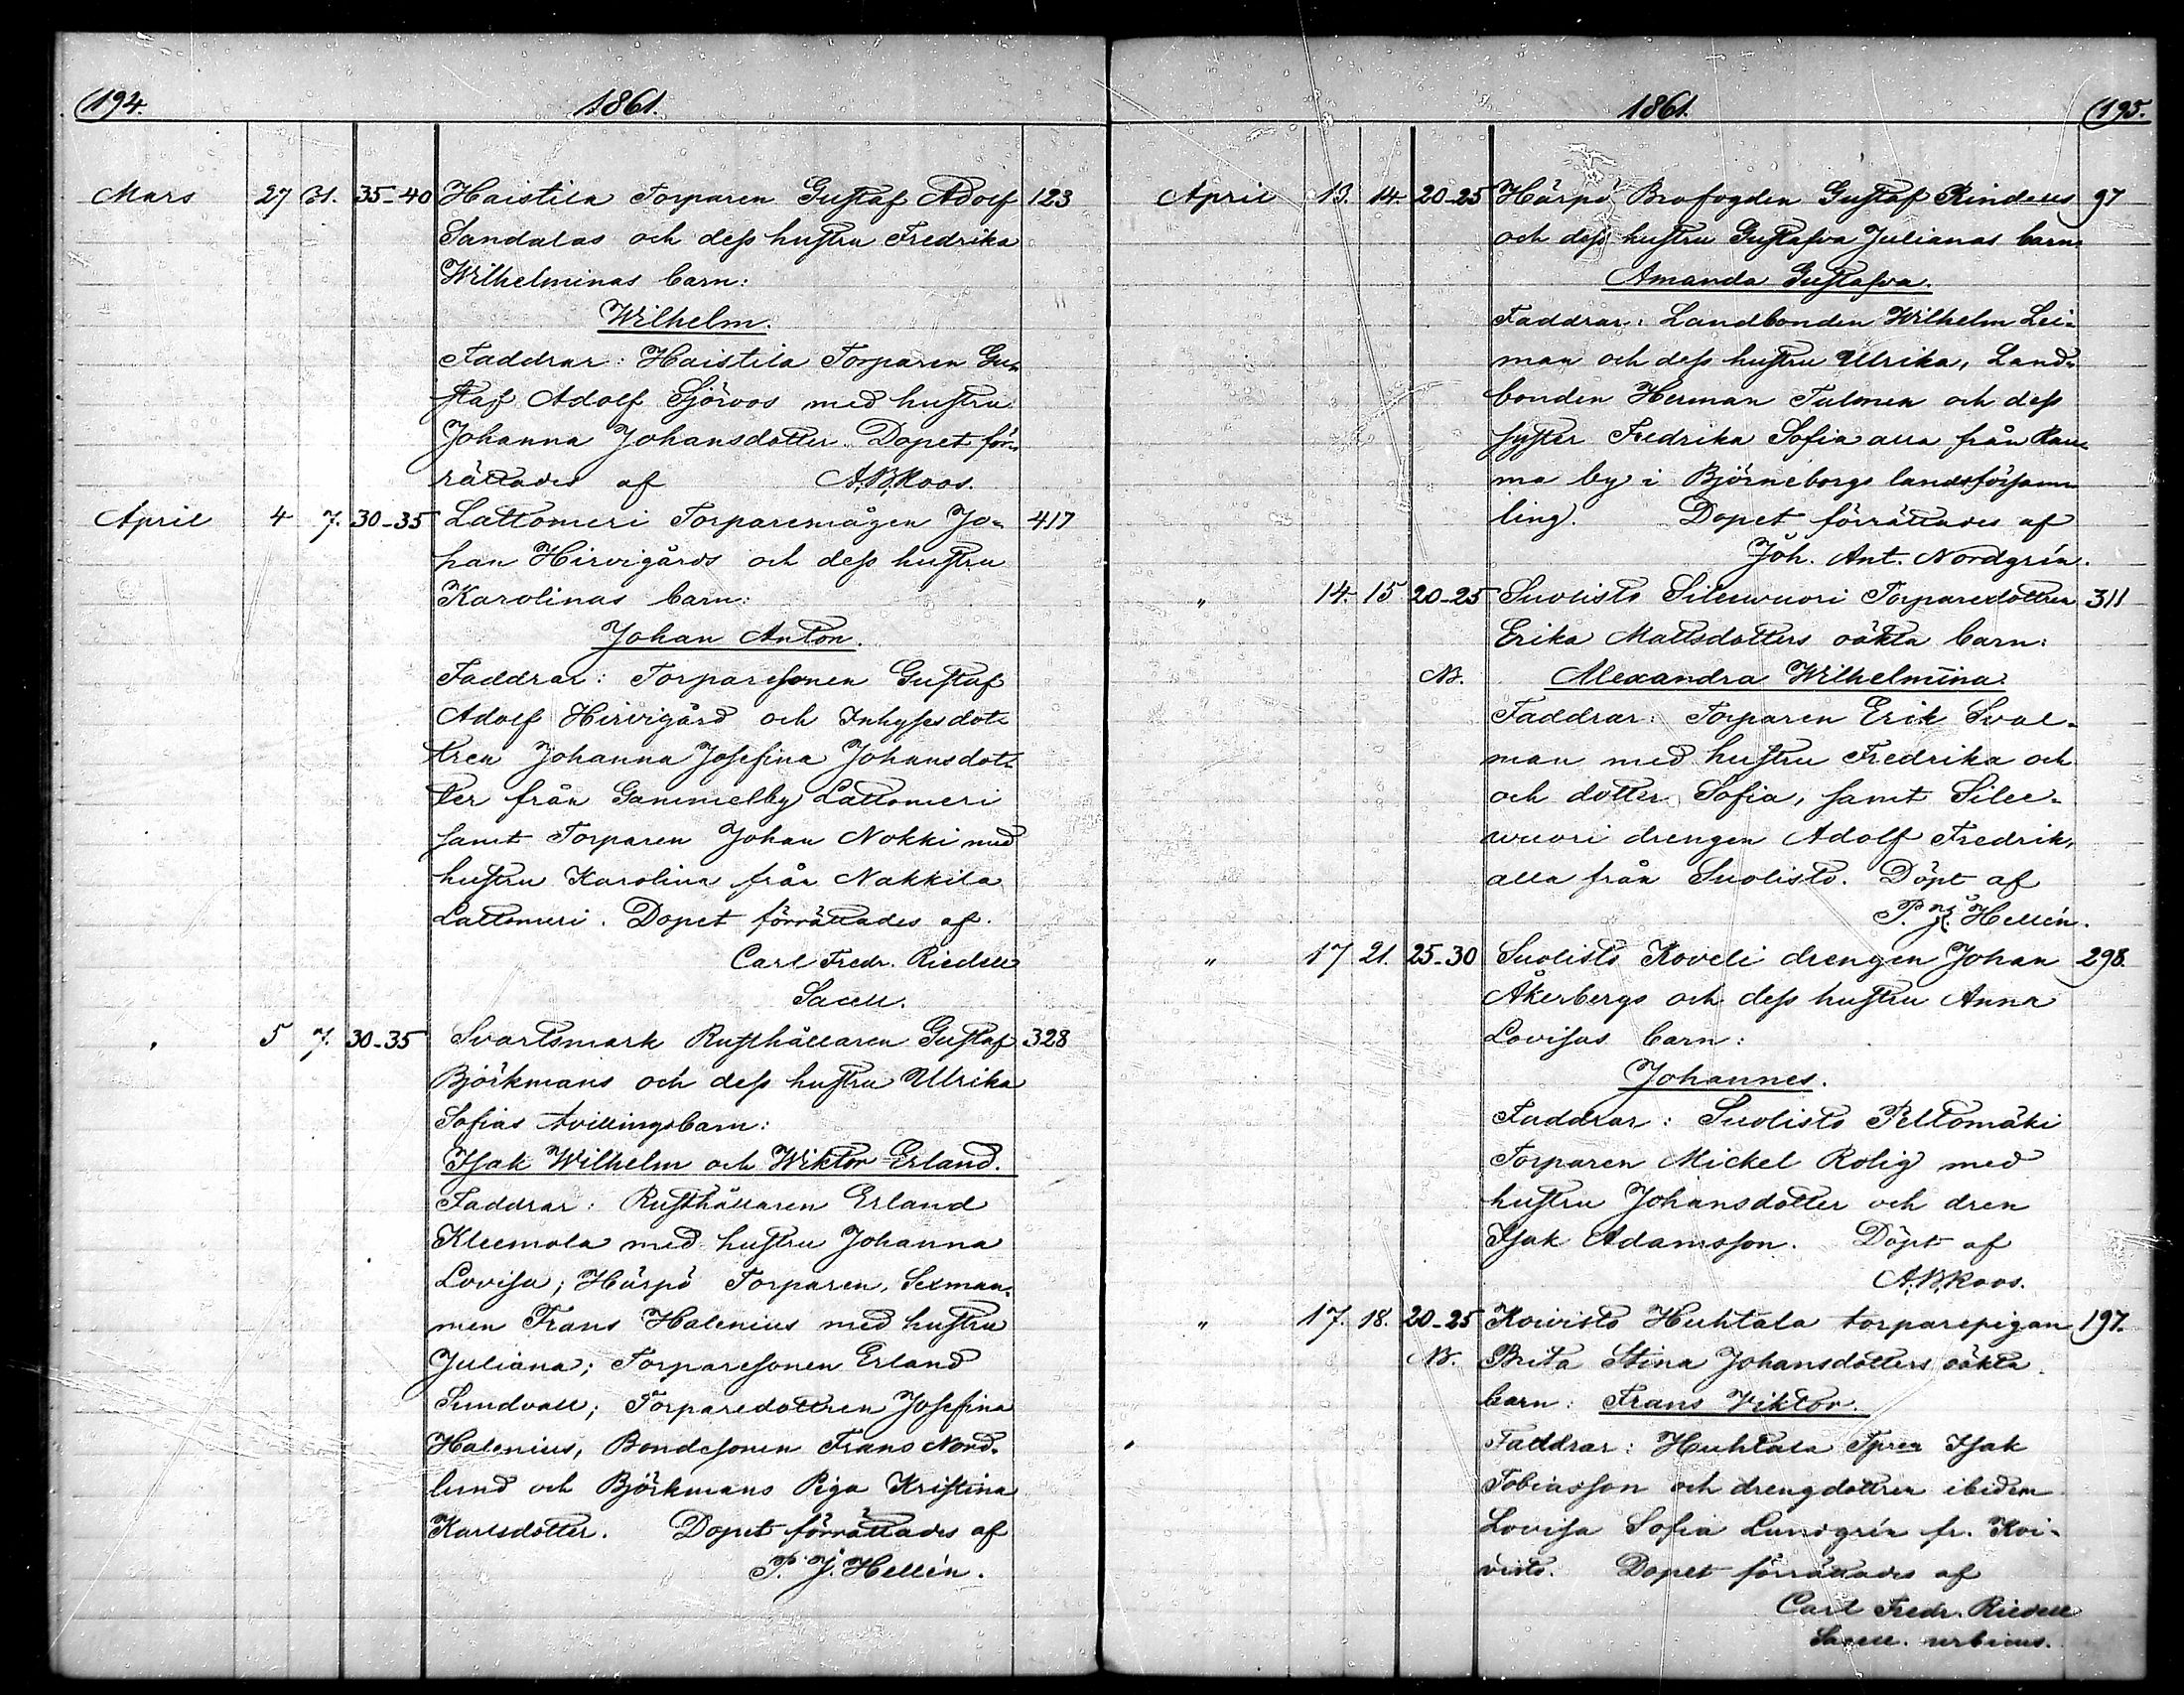 194.
1861.
Mars 27 31. 35-40 Haistila Torparen Gustaf Adolf 123
Sandalas och dess hustru Fredrika
Wilhelminas barn:
Wilhelm.
Faddrar: Haistila Torparen Gu-
staf Adolf Sjöroos med hustru
Johanna Johansdotter. Dopet för-
rättades af A.B.Roos.
April 4 7. 30-35 Lattomeri Torparemågen Jo- 417
han Hirvigårds och dess hustru
Karolinas barn:
Johan Anton.
Faddrar: Torparesonen Gustaf
Adolf Hirvigård och Inhysesdot-
tren Johanna Josefina Johansdot-
ter från Gammelby Lattomeri
samt Torparen Johan Nokki med
hustru Karolina från Nakkila
Lattomeri. Dopet förrättades af
Carl Fredr. Riedell
Sacell.
" 5 7. 30-35 Svartsmark Rusthållaren Gustaf 328
Björkmans och dess hustru Ulrika
Sofias tvillingsbarn:
Isak Wilhelm och Wiktor Erland.
Faddrar: Rusthållaren Erland
Kleemola med hustru Johanna
Lovisa; Härpö Torparen, Sexman-
nen Frans Halenius med hustru
Juliana; Torparesonen Erland
Sundvall; Torparedottren Josefina
Halenius, Bondesonen Frans Nord-
lund och Björkmans Piga Kristina
Karlsdotter. Dopet förrättades af
P. J. Hellén.
1861.
195.
April 13. 14. 20-25 Härpö Brofogden Gustaf Rindells 97
och dess hustru Gustafva Julianas barn
Amanda Gustafva.
Faddrar: Landbonden Wilhelm Lei-
man och dess hustru Ulrika, Land-
bonden Herman Tulonen och dess
syster Fredrika Sofia alla från Ram-
ma by i Björneborgs landsförsam-
ling. Dopet förrättades af
Joh. Ant. Nordgrén.
" 14. 15 20-25 Suolisto Sileevuori Torparedottren 311
Erika Mattsdotters oäkta barn:
NB. Alexandra Wilhelmina.
Faddrar: Torparen Erik Sval-
man med hustru Fredrika och
och dotter Sofia, samt Silee-
wuori drengen Adolf Fredrik,
alla från Suolisto. Döpt af
P. J. Hellén.
" 17 21. 25-30 Suolisto Koveli drengen Johan 298.
Åkerbergs och dess hustru Anna
Lovisas barn:
Johannes.
Faddrar: Suolisto Peltomäki
Torparen Mickel Rolig med
hustru Johansdotter och dren
Isak Adamsson. Döpt af
A.B.Roos.
" 17. 18. 20-25 Koivisto Huhtala torparepigan 197.
NB. Brita Stina Johansdotters oäkta
barn: Frans Viktor.
Faddrar: Huhtala Tpren Isak
Tobiasson och drengdottren ibidem
Lovisa Sofia Lundgrén fr. Koi-
visto. Dopet förrättades af
Carl Fredr. Riedell
Sacell. urbicus.